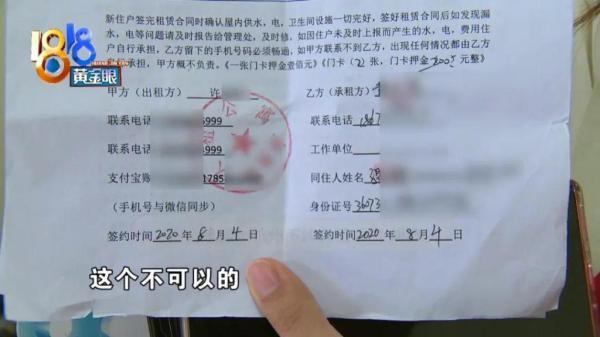 1818
黄金眼
新住户签完租赁合同时确认屋内供水，电，卫生间设施一切完好，签好租赁合同后如发现漏
水，电等问题请及时报告给管理处，及时修，如因住户未及时上报而产生的水，电，费用住
户自行承担，乙方留下的手机号码必须畅通，如甲方联系不到乙方，出现任何情况都由乙方
承担，甲方概不负责。《一张门卡押金壹佰元》《门卡（2）张，门卡押金200元整》
甲方（出租方） 许
乙方（承租方）
联系电话 5999
联系电话 1867
联系电话 4999
工作单位
支付宝账 1785
同住人姓名
（手机号与微信同步）
身份证号 36073
签约时间2020年8月4日
签约时间2020年8月4日
这个不可以的